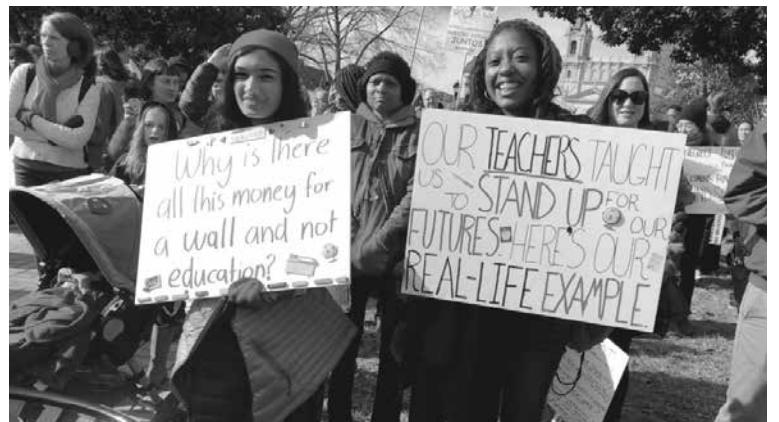 JUNTOS
Why is there
all this money for
a wall and not
education?
OUR TEACHERS TAUGHT
US TO STAND UP FOR OUR
FUTURES. HERE'S OUR
REAL-LIFE EXAMPLE.